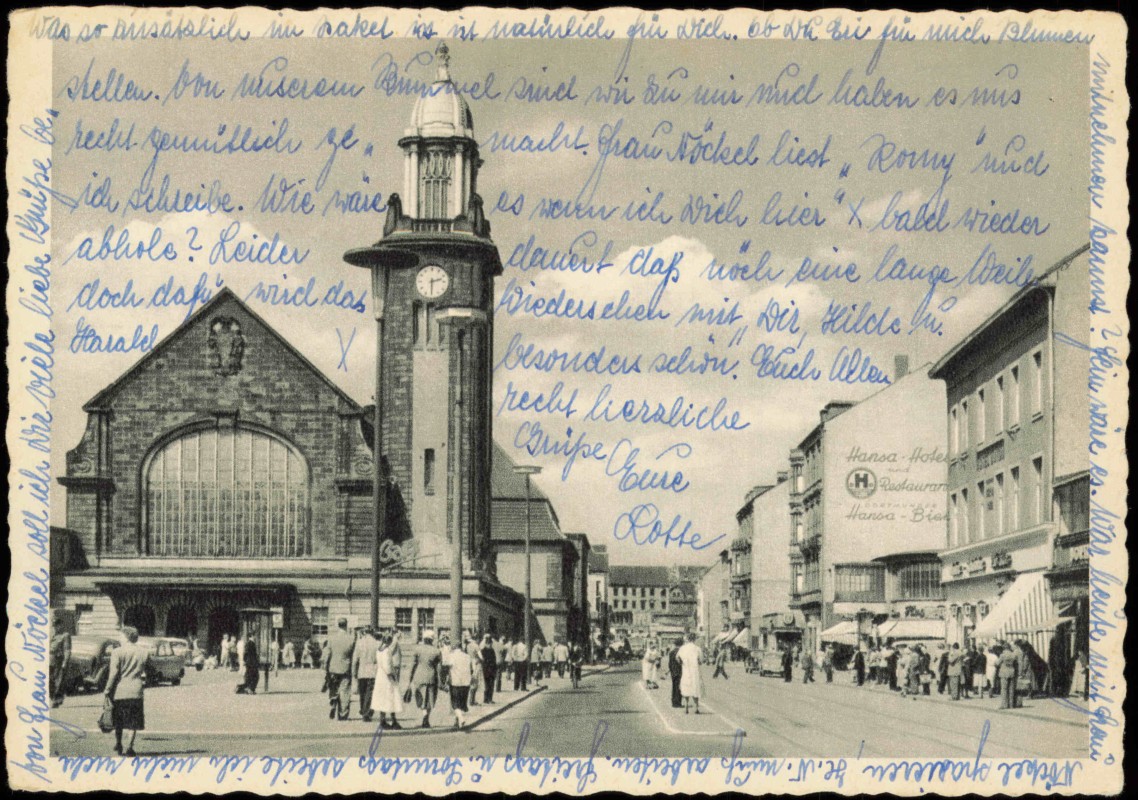 Was so zusätzlich im Paket ist ist natürlich für Dich. Ob Du Evi für mich Blumen
stellen. Von unserem Bummel sind wir zu mir und haben es uns
recht gemütlich ge„ macht. Frau Nöckel liest „Romy" und
ich schreibe. Wie wäre es wenn ich Dich hier" X bald wieder
abhole? Leider dauert daß noch eine lange Weile
doch dafür wird das Wiedersehen mit „Dir, Hilde u.
Harald X besonders schön". Euch Allen
recht herzliche
Grüße Eure
Lotte
mitnehmen kannst? Fein wäre es. War heute mit Frau
Nöckel spazieren. H. N. muß arbeiten. Freitags u. Sonntags arbeite ich nicht mehr
von Frau Nöckel soll ich Dir viele liebe Grüße be„
Hansa-Hotel
und
Restaurant
Hansa-Bier
H
Café